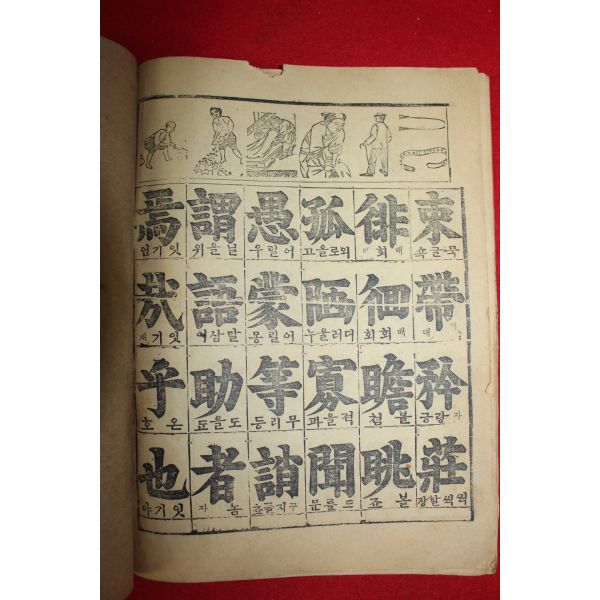 束
帶
矜 자랑긍
莊 씩씩할장
徘 배회배
徊 배회회
瞻 볼쳠
眺 볼죠
孤 외로울고
陋 더러울누
寡 적을과
聞 드를문
愚 어릴우
蒙 어릴몽
等 무리등
誚
謂 닐을위
語 말삼어
助
者 놈자
焉 잇기언
哉 잇기재
乎 온호
也 잇기야